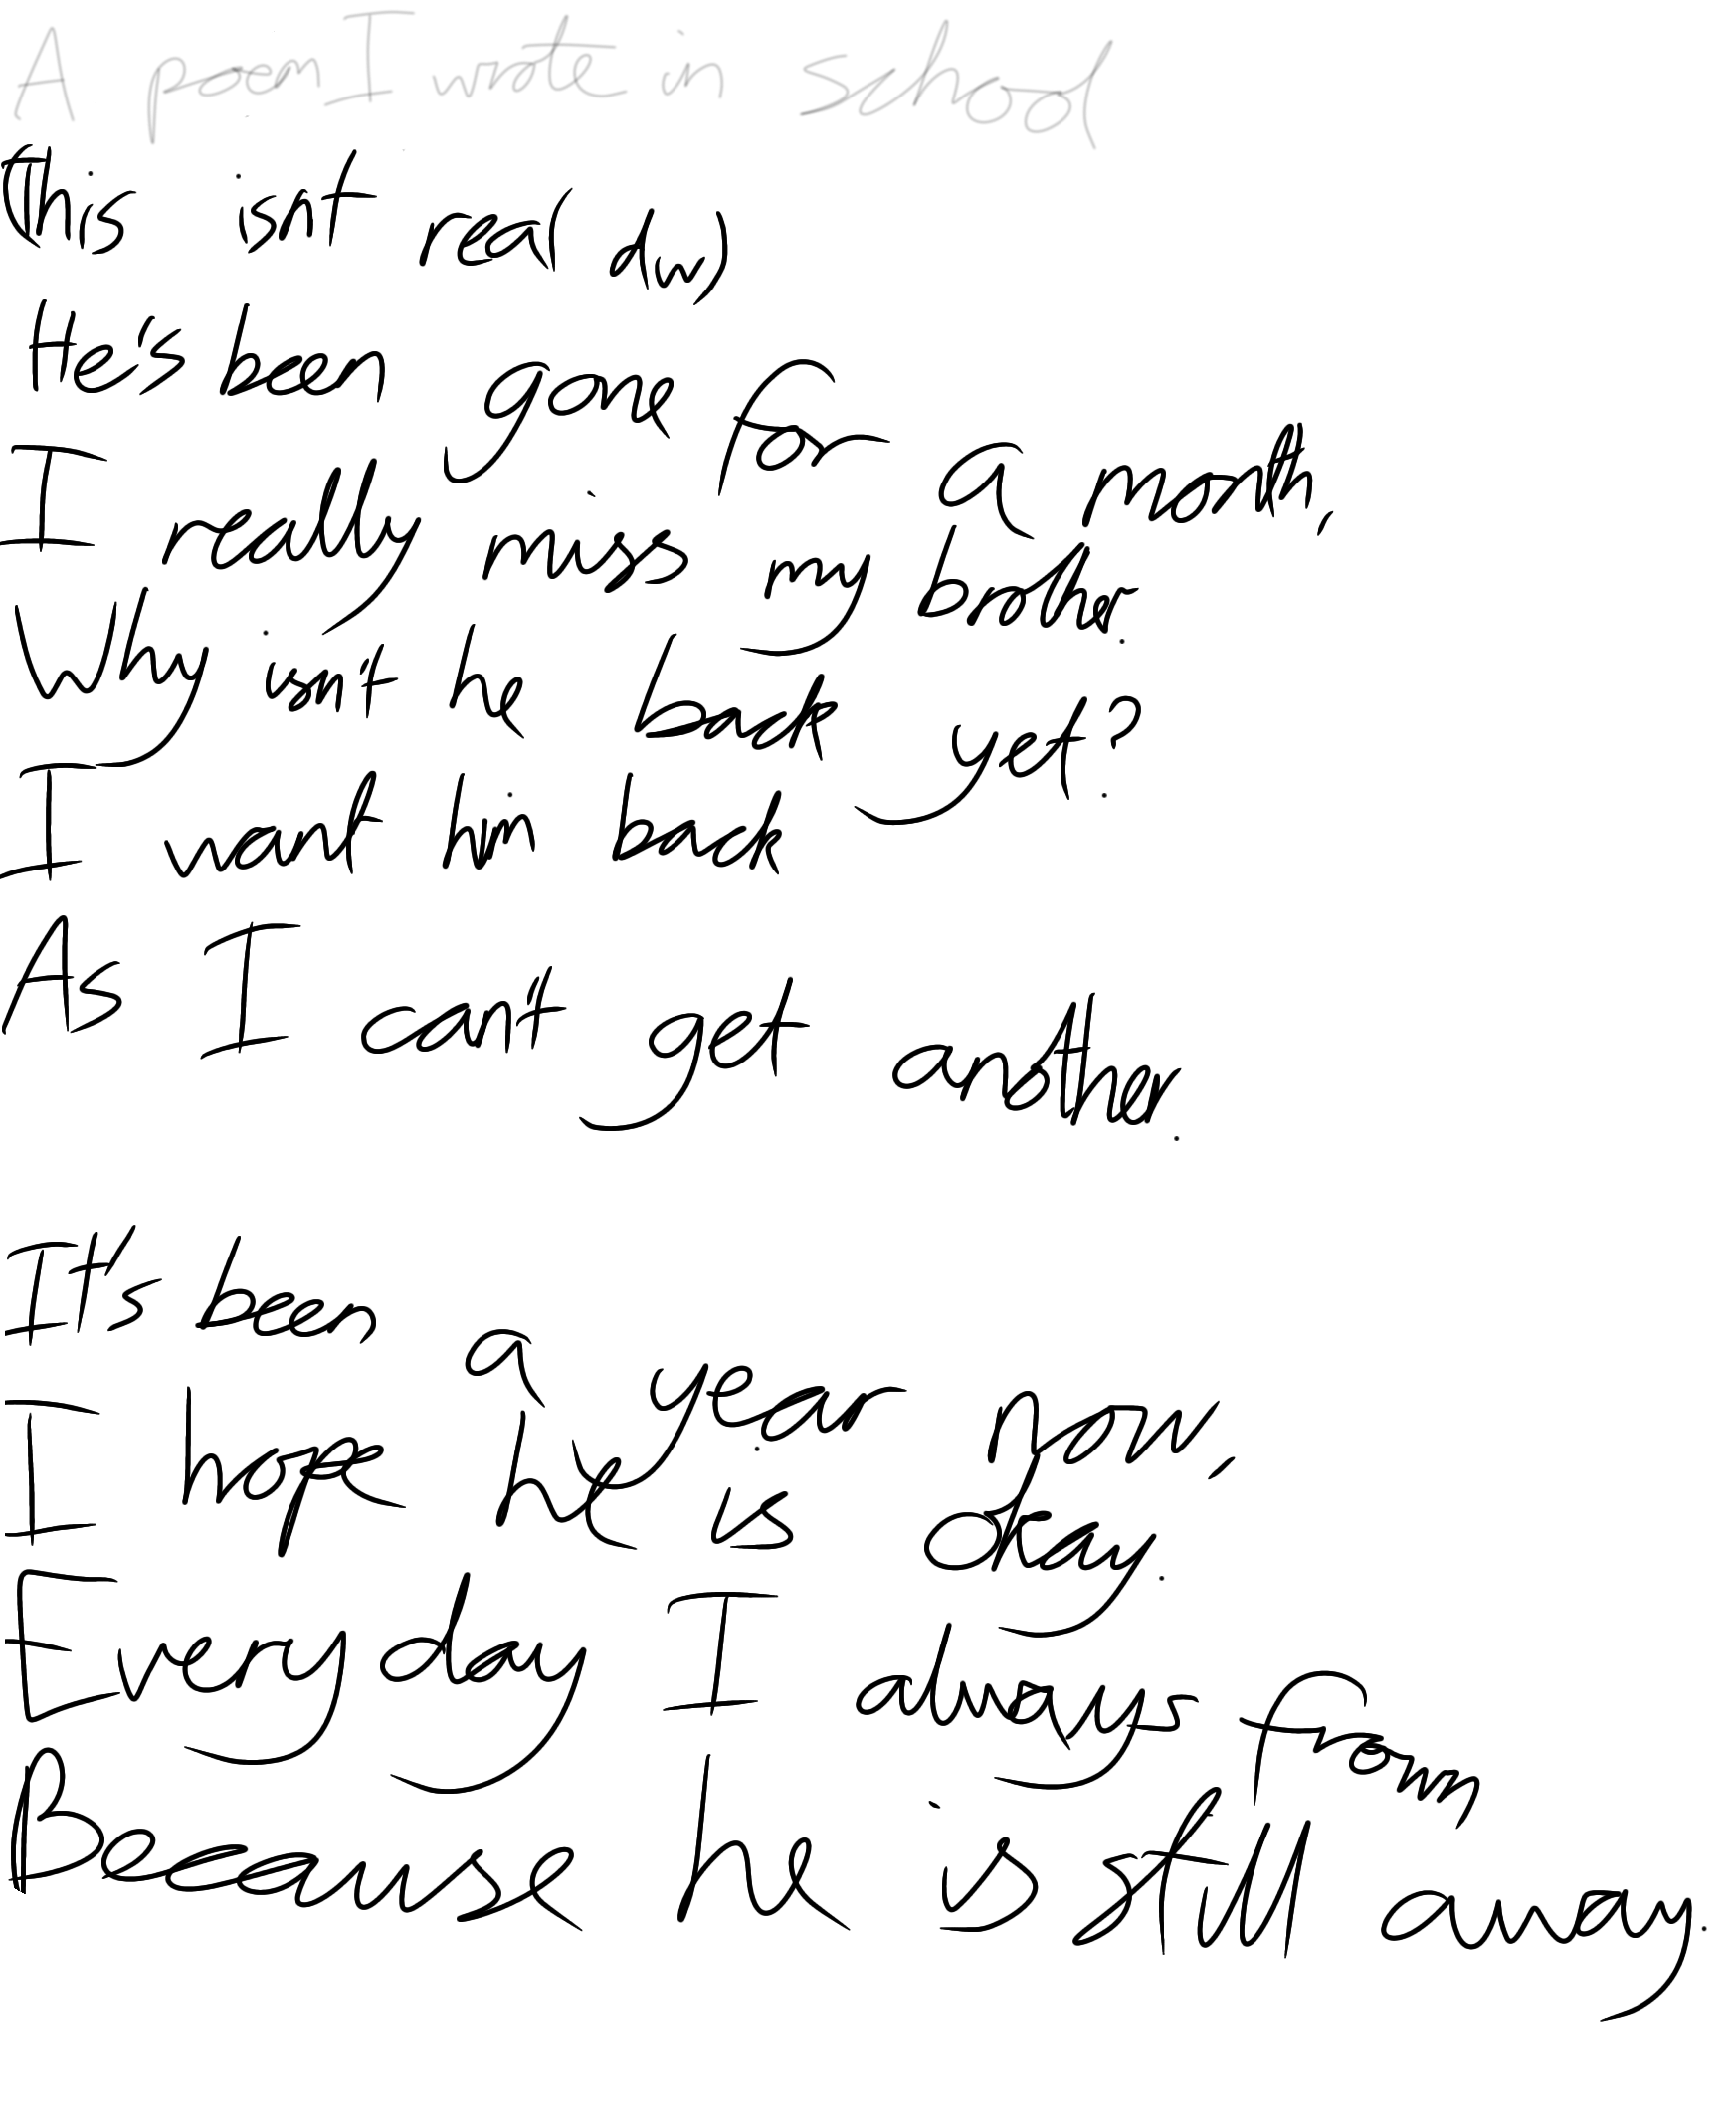 A poem I wrote in school
(This isnt real dw)
He's been gone for a month,
I really miss my brother.
Why isn't he back yet?
I want him back
As I can't get another.
It's been a year now,
I hope he is okay.
Every day I always frown,
Because he is still away.